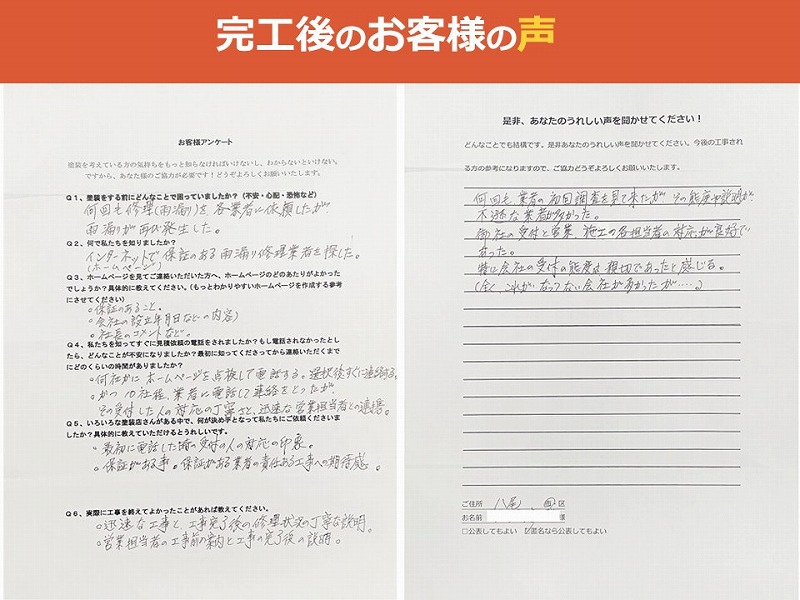 完工後のお客様の声
お客様アンケート
塗装を考えている方の気持ちをもっと知らなければいけないし、わからないといけない。
ですから、あなた様のご協力が必要です！どうぞよろしくお願いいたします。
Q1、塗装をする前にどんなことで困っていましたか？（不安・心配・恐怖など）
何回も修理(雨漏り)を各業者に依頼したが
雨漏が再び発生した。
Q2、何で私たちを知りましたか？
インターネットで保証のある雨漏り修理業者を探した。
(ホームページ)
Q3、ホームページを見てご連絡いただいた方へ、ホームページのどのあたりがよかった
でしょうか？具体的に教えてください。（もっとわかりやすいホームページを作成する参考
にさせてください）
○保証のあること。
○会社の設立年月日などの内容)
○社長のコメントなど。
Q4、私たちを知ってすぐに見積依頼の電話をされましたか？もし電話されなかったとし
たら、どんなことが不安になりましたか？最初に知ってくださってから連絡いただくまで
にどのくらいの時間がありましたか？
○何社かにホームページを点検して電話する。選択後すぐに連絡する。
○かつ10社程、業者に電話して連絡をとったが、
その受付した人の対応の丁寧さと、迅速な営業担当者との連携。
Q5、いろいろな塗装店さんがある中で、何が決め手となって私たちにご依頼くださいま
したか？具体的に教えていただけるとうれしいです。
○最初に電話した時の受付の人の対応の印象。
○保証がある事。保証がある業者の責任ある工事への期待感。
Q6、実際に工事を終えてよかったことがあれば教えてください。
○迅速な工事と、工事完了後の修理状況の丁寧な説明。
○営業担当者の工事前の案内と工事の完了後の説明。
是非、あなたのうれしい声を聞かせてください！
どんなことでも結構です。是非あなたのうれしい声を聞かせてください。今後の工事され
る方の参考になりますので、ご協力どうぞよろしくお願いいたします。
何回も業者の初回調査を見て来たが その態度や説明が
不遜な業者が多かった。
御社の受付と営業、施工の各担当者の対応が良好で
あった。
特に会社の受付の態度は親切であったと感じる。
(全く、これがなってない会社が多かったが……。)
ご住所 八尾 市区
お名前 様
□公表してもよい ☑匿名なら公表してもよい